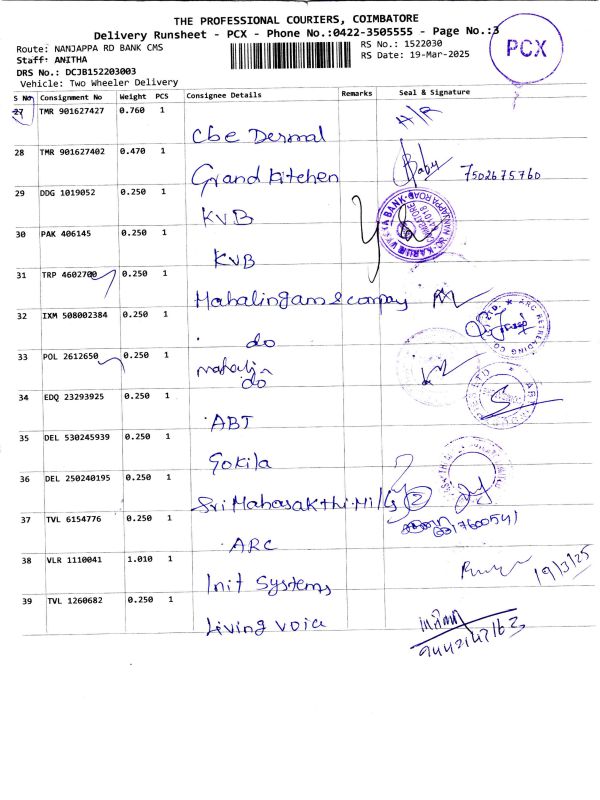 THE PROFESSIONAL COURIERS, COIMBATORE
Delivery Runsheet - PCX - Phone No.:0422-3505555 - Page No.:3
PCX
Route: NANJAPPA RD BANK CMS
RS No.: 1522030
Staff: ANITHA
RS Date: 19-Mar-2025
DRS No.: DCJB152203003
Vehicle: Two Wheeler Delivery
S No Consignment No Weight PCS Consignee Details Remarks Seal & Signature
27 TMR 901627427 0.760 1 Cbe Dermal
28 TMR 901627402 0.470 1 Grand kitchen Baby 7502675760
29 DDG 1019052 0.250 1 KVB
30 PAK 406145 0.250 1 KVB
31 TRP 4602700 0.250 1 Mahalingam & company
32 IXM 508002384 0.250 1 do
33 POL 2612650 0.250 1 do
34 EDQ 23293925 0.250 1 ABT
35 DEL 530245939 0.250 1 Gokila
36 DEL 250240195 0.250 1 Sri Mahasakthi Mills 2
37 TVL 6154776 0.250 1 ARC
38 VLR 1110041 1.010 1 Init Systems 19/3/25
39 TVL 1260682 0.250 1 Living voice